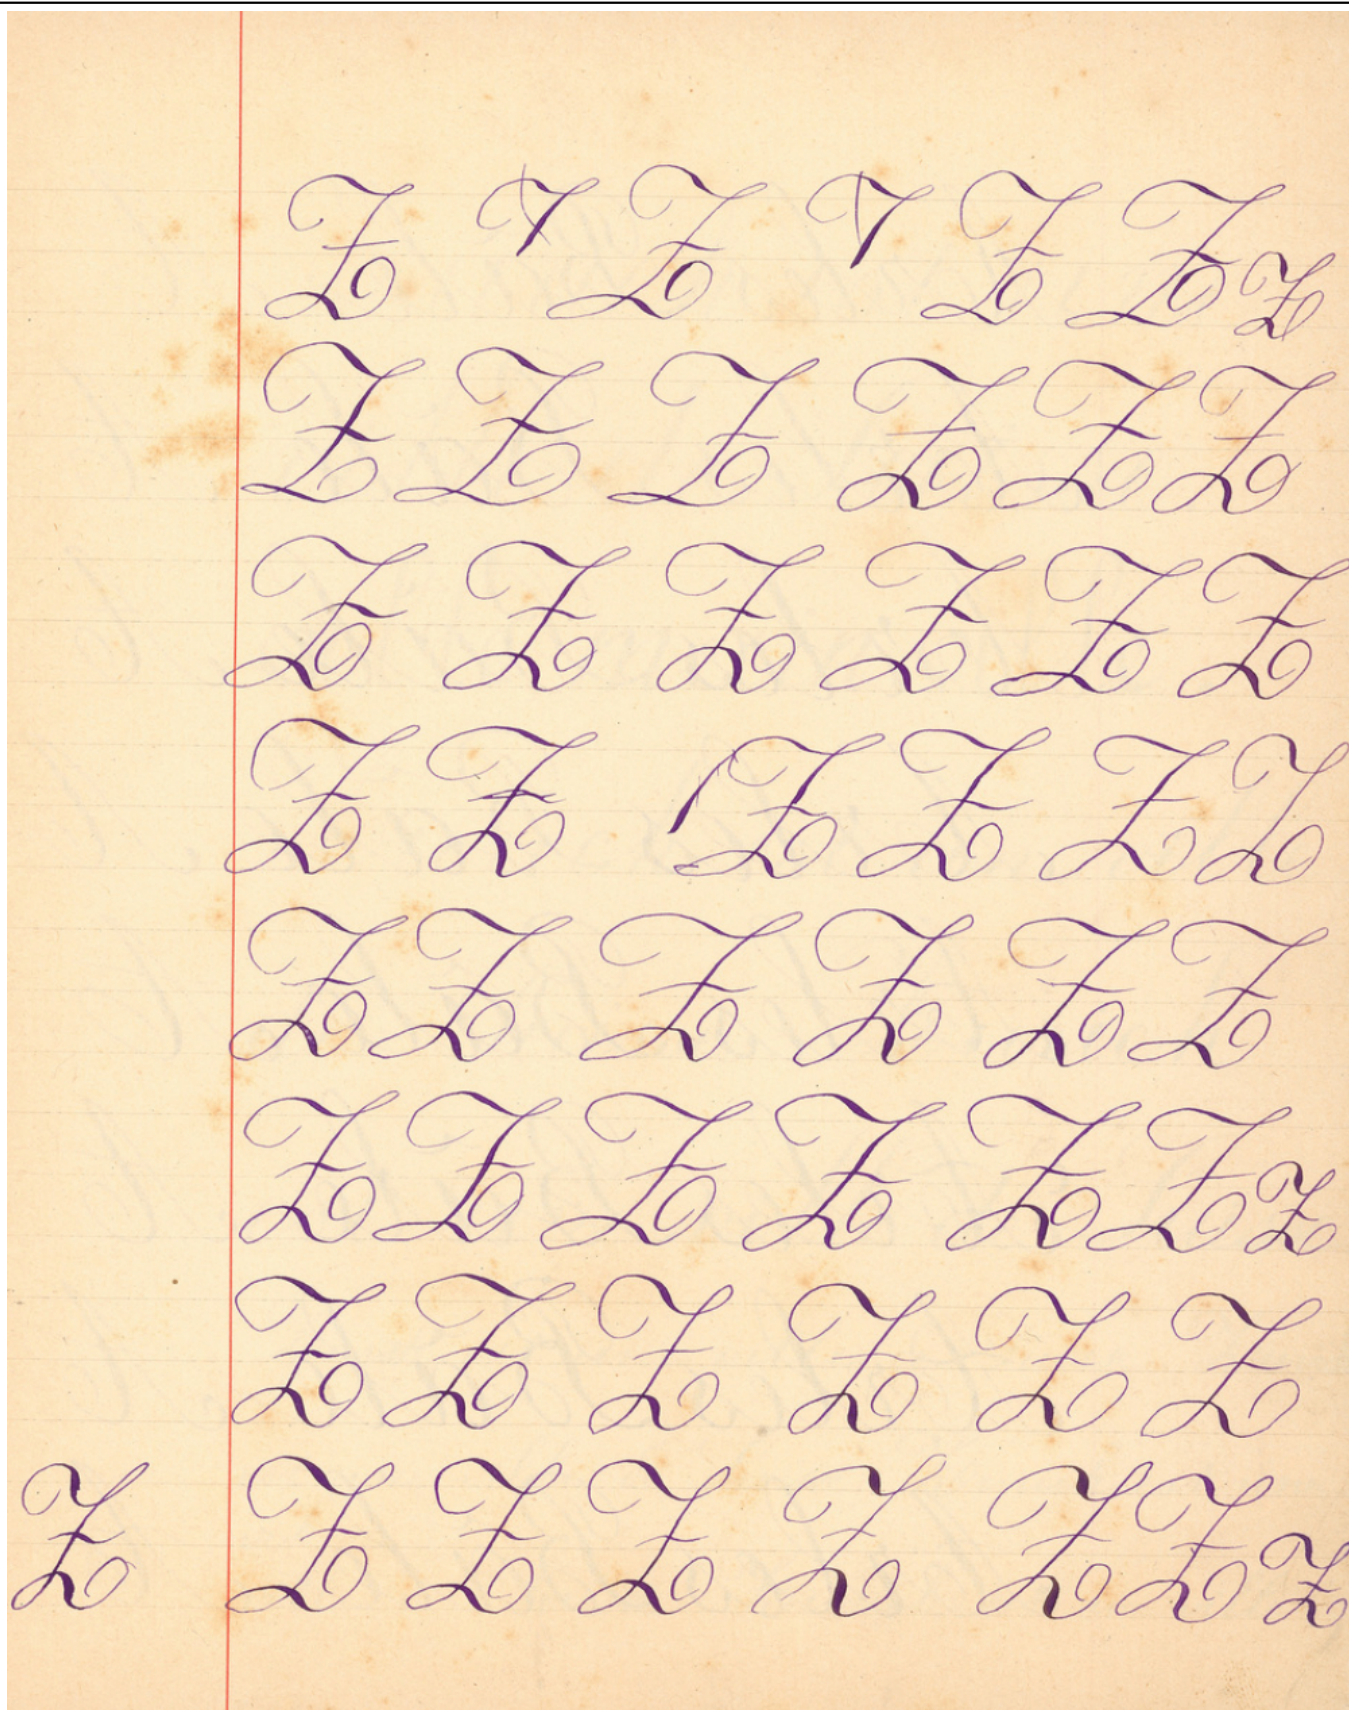 Z Z Z Z Z
Z Z Z Z Z Z
Z Z Z Z Z Z
Z Z Z Z Z Z
Z Z Z Z Z Z
Z Z Z Z Z Z Z
Z Z Z Z Z Z
Z Z Z Z Z Z Z Z